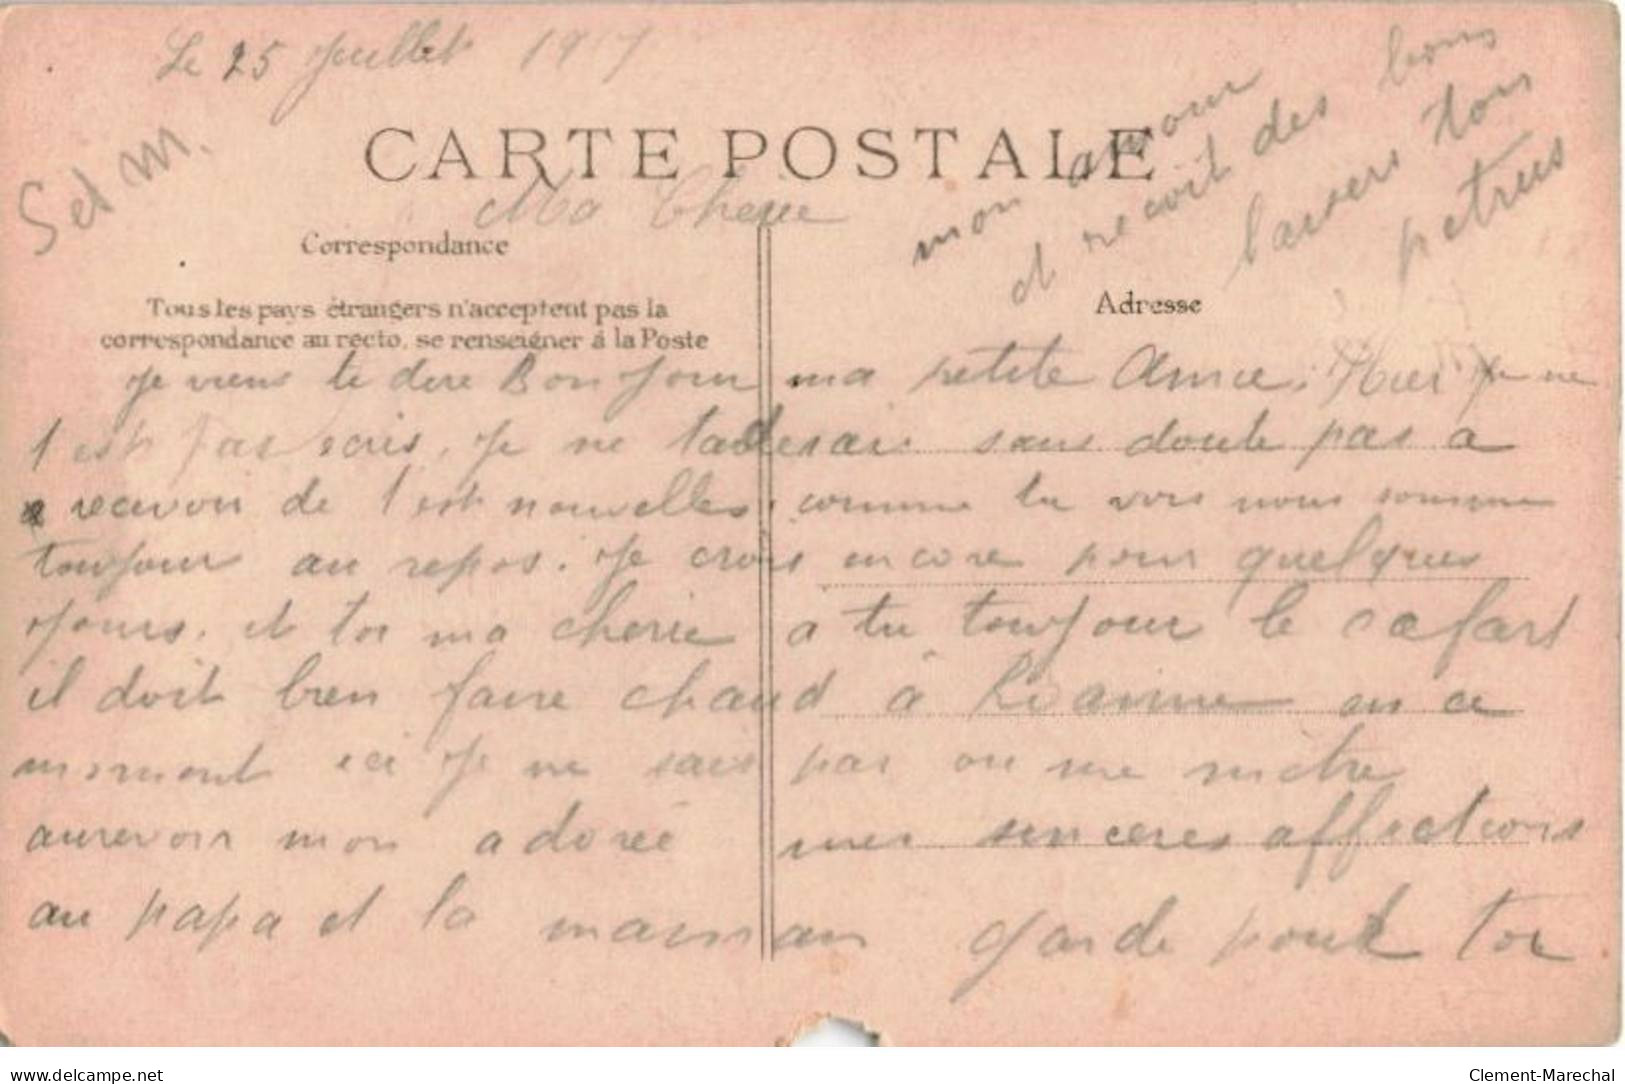 Le 25 Juillet 1917
Set M.
CARTE POSTALE
Ma Cherie
Correspondance
Tous les pays étrangers n'acceptent pas la
correspondance au recto, se renseigner à la Poste
Adresse
Je viens te dire Bonjour ma petite Amie. Hier Je ne
t est pas ecris, Je ne tarderai sans doute pas a
recevoir de t est nouvelles, comme tu vois nous somme
toujour au repos. Je crois encore pour quelques
Jours. et toi ma cherie a tu toujour le cafart
il doit bien faire chaud à Roanne en ce
moment ici Je ne sais pas ou me mètre
aurevoir mon adoreé mes sinceres affections
au papa et la maman garde pour toi
mon amour
et recoit des bons
baisers ton
petrus
Clement-Marechal
www.delcampe.net